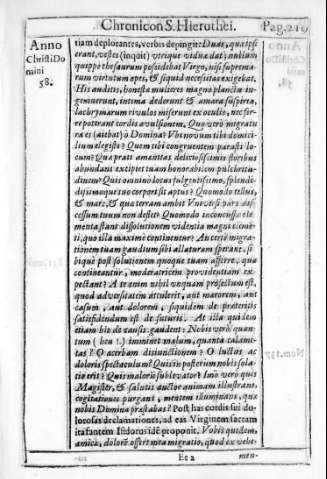 Chronicon S. Hierothei. Pag. 219
Anno
Christi Do
mini
58.
tiam deplorantes, verbis depingit: Duas, quæ ipsi
erant, vestes (inquit) vtrique viduæ dat; nullum
quippè thesaurum possidebat Virgo, nisi supremarum
virtutum opes, & siquid necessitas exigebat.
His auditis, honesta mulieres magno planctu in-
gemuerunt, intima dederunt & amara suspiria,
lachrymarum rivulos miserunt ex oculis, nec fer-
re poterant cordis avulsionem. Quo verò migratu-
ra es (aiebat) ò Domina? Vbi novum tibi domici-
lium elegisti? Quem tibi congruentem parasti lo-
cum? Qua prati amænitas deliciosissimis floribus
abundans excipiet tuam honorabilem pulchritu-
dinem? Quis omnino locus fulgentissimo, splendi-
dissimoque tuo corpori sit aptus? Quomodo tellus,
& mare, & qua terram ambit Vniversi pars dis-
cessum tuum non deflet? Quomodo inconcussa ele-
menta stant dissolutionem videntia magni cœme-
tij, quo illa maximè continentur? An certè migra-
tionem tuam gaudium sibi allaturam sperant, si-
bique post solutionem quoque tuam afferre, qua
contineantur, moderatricem providentiam ex-
pectant? A te enim nihil vnquam profectum est,
quod adversitatem attulerit, aut mærorem, aut
casum, aut dolorem, siquidem de præteritis
satisfidendum est de futuris. At illa quidem
etiam his de causis gaudent: Nobis verò quan-
tum ( heu !) imminet malum, quanta calami-
tas? O acerbam disiunctionem? O luctus ac
doloris spectaculum? Quis in posterùm nobis sola-
tio erit? Quis malorù sublevator? Imò verò quis
Magister, & salutis auctor animam illustrans,
cogitationes purgans, mentem illuminans, quæ
nobis Domina præstabas? Post has cordis sui do-
lorosas declamationes, ad eas Virginem sacram
ita fantem Isidorus idē proponit. Vobis quidem
amicæ, dolorē affert mea migratio, quod ex vehe-
Ee 2 men-